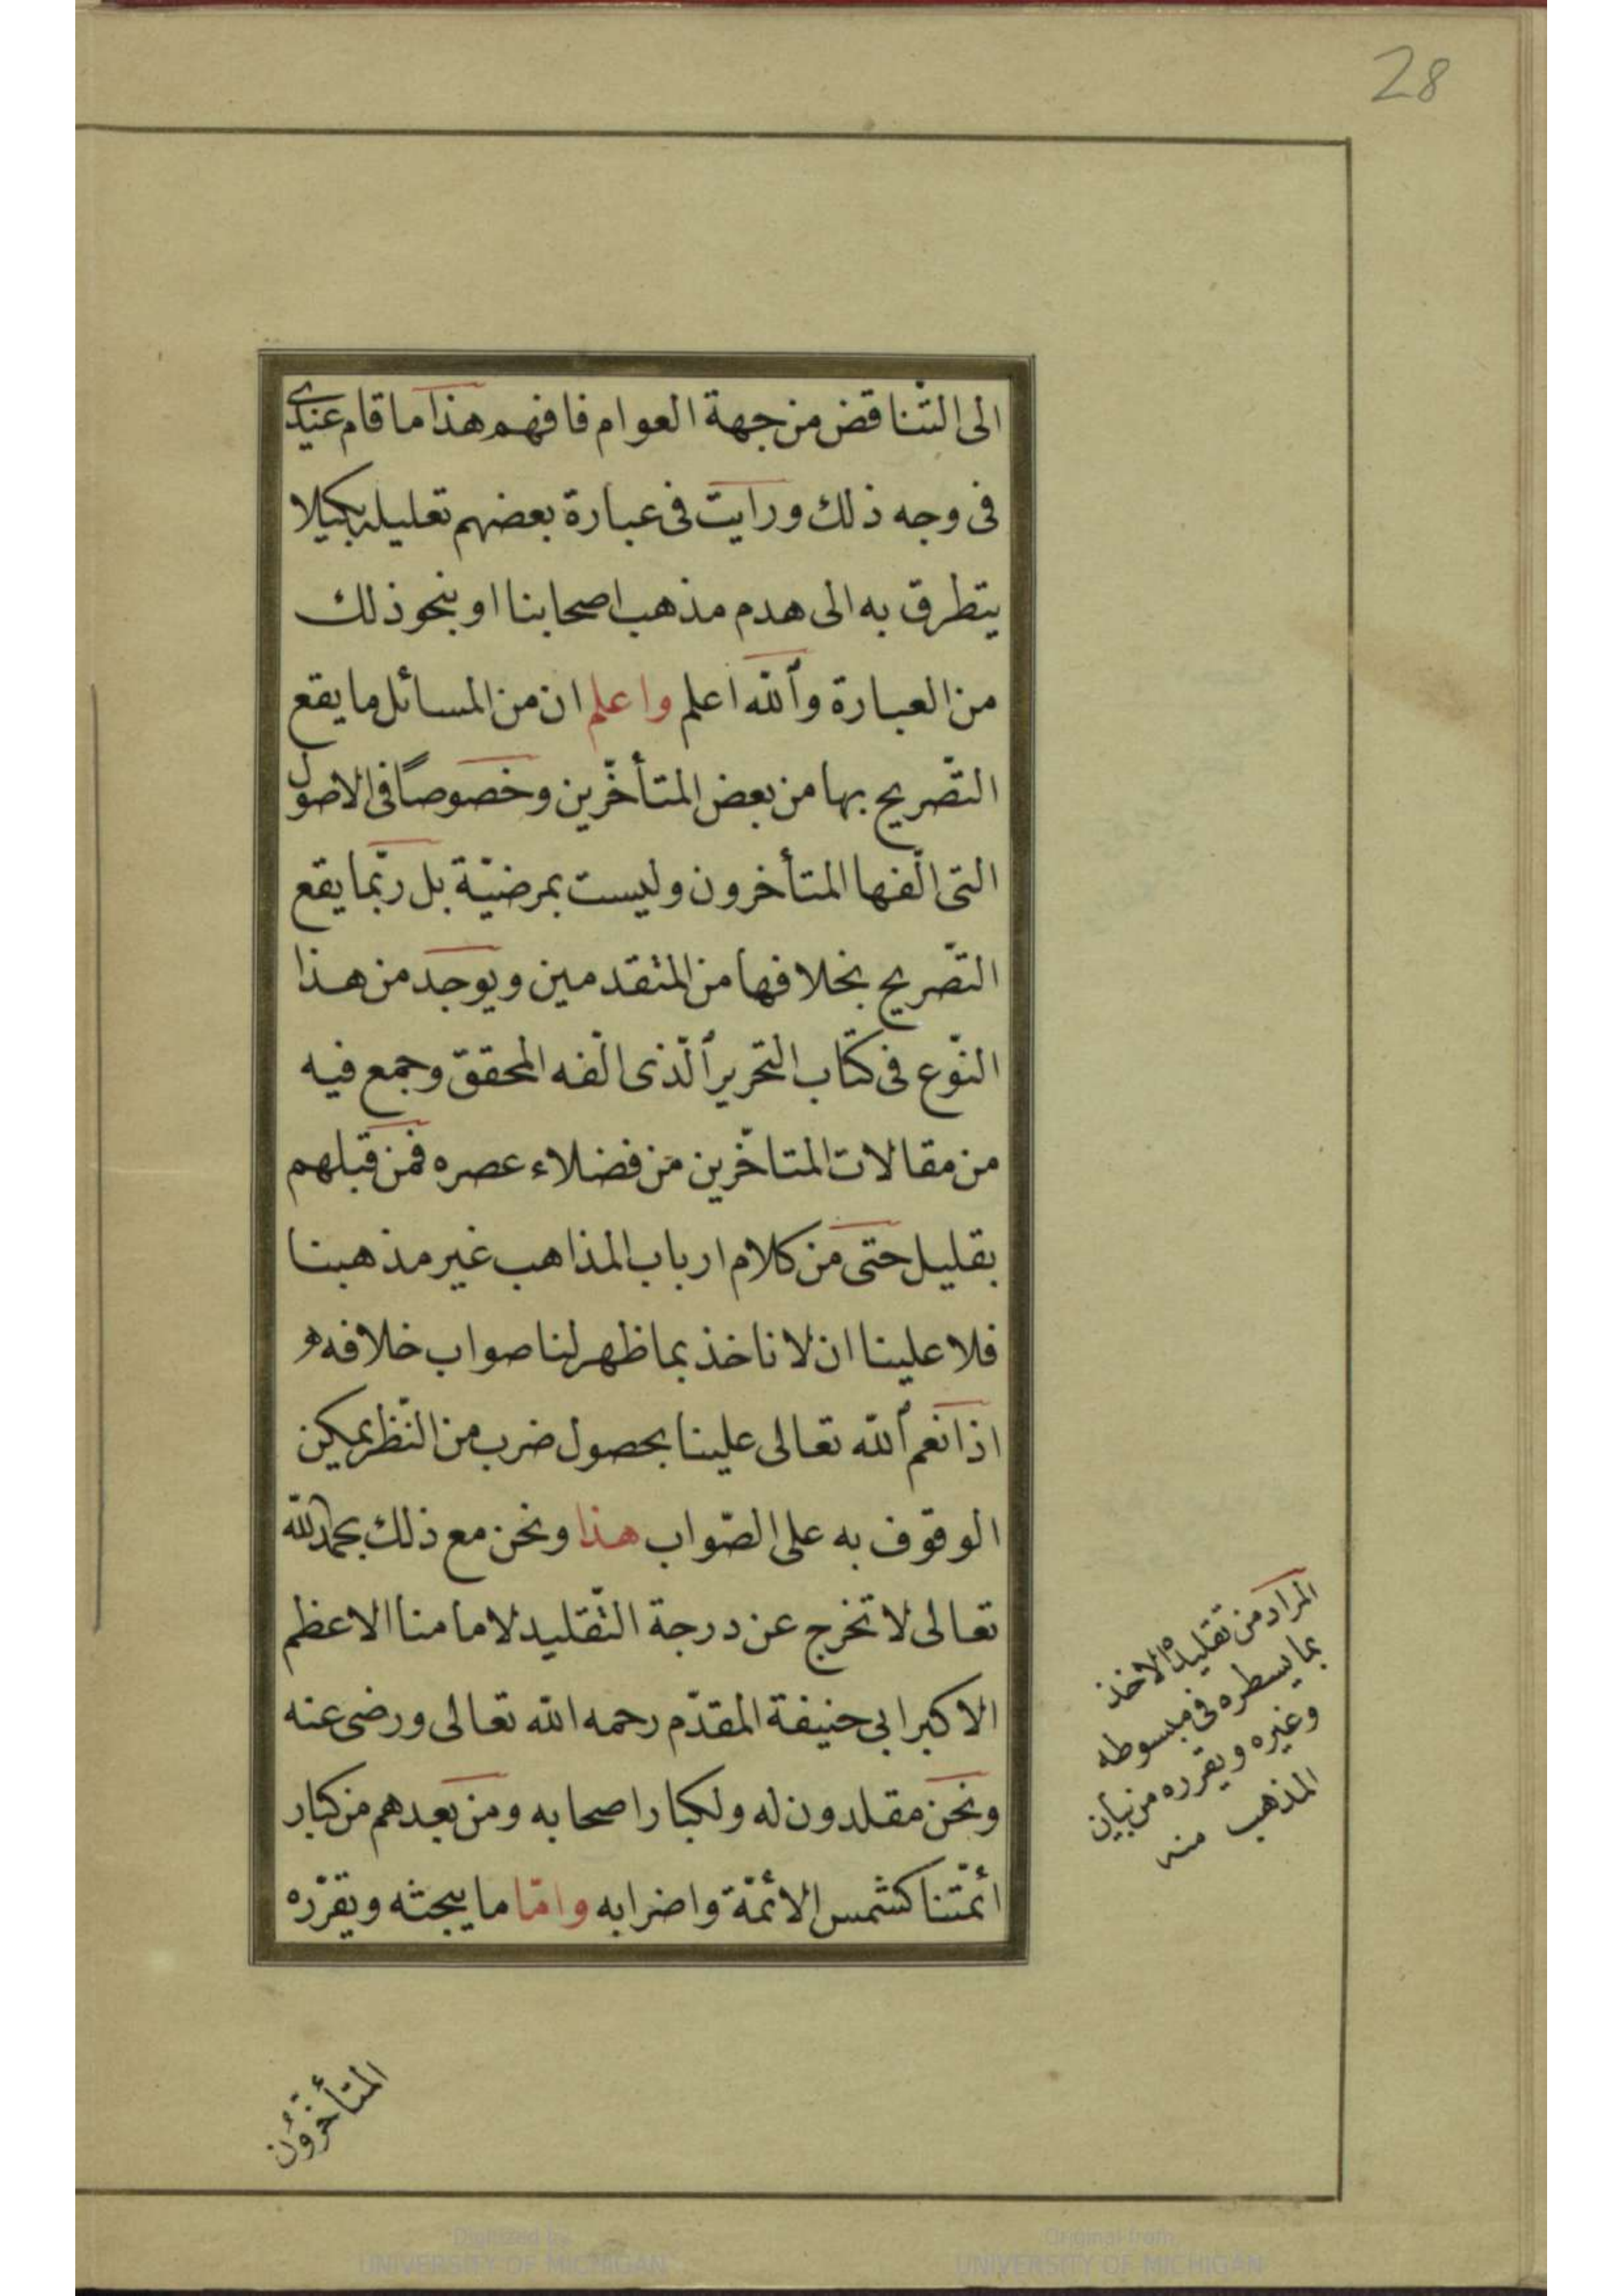 28
الى التّناقض من جهة العوام فافهم هذا ما قام عندى
فى وجه ذلك ورايت فى عبارة بعضهم تعليله بكيلا
يتطرق به الى هدم مذهب اصحابنا او بنحو ذلك
من العبارة وٱللّٰه اعلم واعلم ان من المسائل ما يقع
التّصريح بها من بعض المتأخّرين وخصوصًا فى الاصول
التى الّفها المتأخرون وليست بمرضيّة بل ربّما يقع
التّصريح بخلافها من المتقدمين ويوجد من هذا
النّوع فى كتاب التحرير ٱلّذى الّفه المحقق وجمع فيه
من مقالات المتاخّرين من فضلاء عصره فمن قبلهم
بقليل حتى من كلام ارباب المذاهب غير مذهبنا
فلا علينا ان لا ناخذ بما ظهر لنا صواب خلافه و
اذا نعم ٱللّٰه تعالى علينا بحصول ضرب من النّظر يمكن
الوقوف به على الصّواب هذا ونحن مع ذلك بحمد اللّٰه
تعالى لا نخرج عن درجة التّقليد لامامنا الاعظم
الاكبر ابى حنيفة المقدّم رحمه اللّٰه تعالى ورضى عنه
ونحن مقلدون له ولكبار اصحابه ومن بعدهم من كبار
ائمّتنا كشمس الائمّة واضرابه وامّا ما يبحثه ويقرّره
المراد من تقليده الاخذ
بما يسطره فى مبسوطه
وغيره ويقرره من بيان
المذهب منه
المتأخرون
Digitized by
UNIVERSITY OF MICHIGAN
Original from
UNIVERSITY OF MICHIGAN